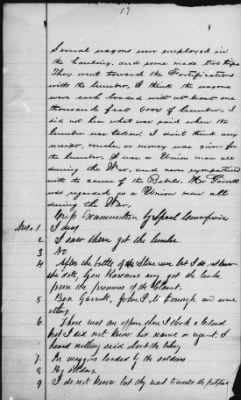 17
Several wagons were employed in
the hauling, and some made two trips
They went toward the Fortifications
with the lumber, I think the wagons
were each loaded with at least one
thousand feet of lumber, I
did not hear what was said when the
lumber was taken. I don't think any
receipt, voucher, or money was given for
the lumber, I was a Union man all
during the War, and never sympathized
with the cause of the Rebels. Mr Garrett
was regarded as a Union man all
during the War.
Cross Examination by Special Commissioner
Ans. to 1 I was
2 I saw them get the lumber
3 No
4 After the battle of the
the Gen get the lumber
from the premises of the Claimant.
5 Ben Garrett, John and some
others.
6 There was an officer there I think a Colonel
but I did not know his name or regiment. I
heard nothing said about the taking
7 The wagons loaded by the soldiers
8 By
9 I do not know but they went towards the